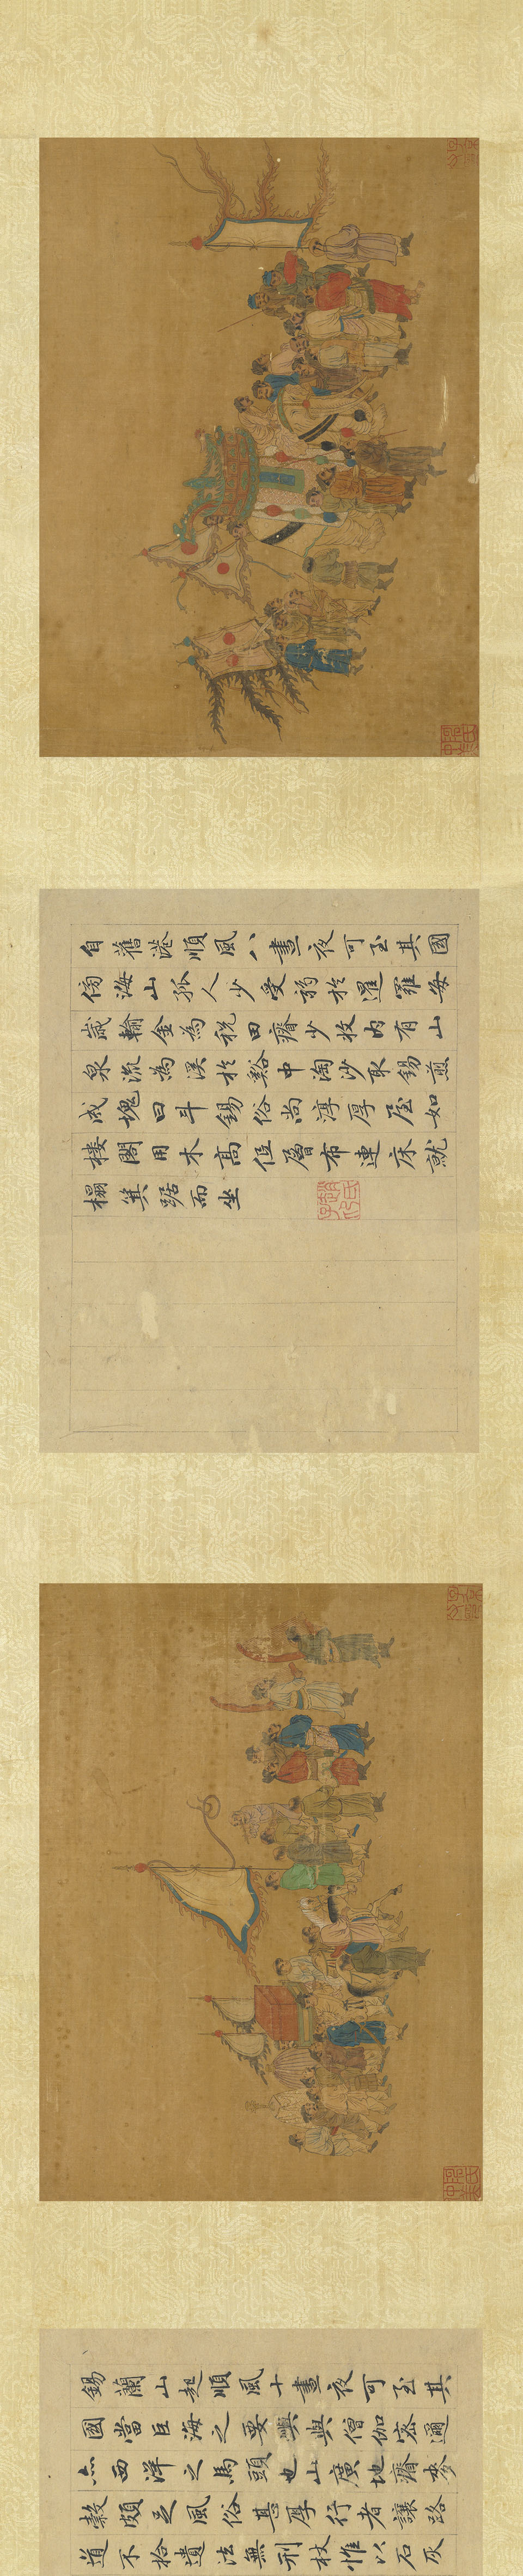 自舊港順風八晝夜可至其國
傍海山孤人少受於暹羅每
歲輸金為稅田瘠少收內有山
泉流為溪於谿中淘沙取錫煎
成塊曰斗錫俗尚淳厚屋如
樓閣用木高低層布連床就
榻箕踞而坐
錫蘭山起順風十晝夜可至其
國當巨海之要嶼與僧伽密邇
亦西洋之馬頭也山廣地瘠麥
穀頗足風俗甚厚行者讓路
道不拾遺法無刑杖惟以石灰